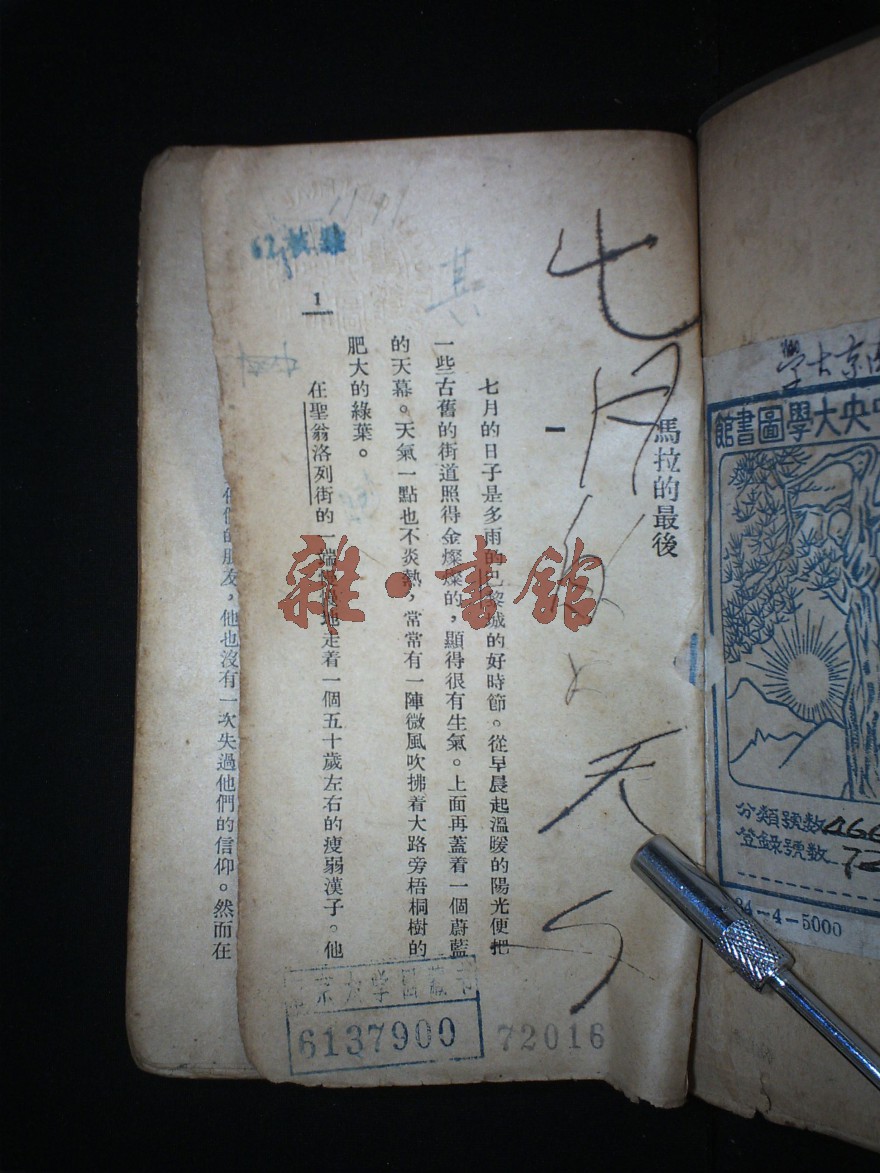 馬拉的最後
一
七月的日子是多雨的巴黎城的好時節。從早晨起溫暖的陽光便把
一些古舊的街道照得金燦燦的，顯得很有生氣。上面再蓋着一個蔚藍
的天幕。天氣一點也不炎熱，常常有一陣微風吹拂着大路旁梧桐樹的
肥大的綠葉。
在聖翁洛列街的一端慢慢地走着一個五十歲左右的瘦弱漢子。他
1
他也沒有一次失過他們的信仰。然而在
七月
天
雜·書館
京大學
6137900
72016
京大学
中央大學圖書館
分類號數
登錄號數
34-4-5000